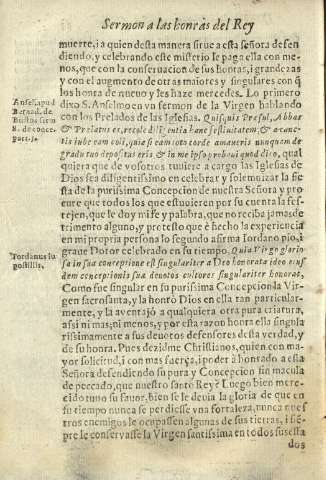 Sermon a las honras del Rey
muerte, i a quien desta manera sirue a esta señora defen
diendo, y celebrando este misterio le paga ella con me-
nos, que con la conseruacion de sus honras, i grandezas
y con el augmento de otras maiores y singulares con q̃
los honra de nueuo y les haze mercedes. Lo primero
dixo S. Anselmo en vn sermon de la Virgen hablando
con los Prelados de las Iglesias. Quisquis Præsul, Abbas
& Prelatus es, recole diligentia hanc festiuitatem, & a cunc-
tis iube eam coli, quia si eam toto corde amaueris nunquam de
gradu tuo depositus eris & in me ipso probaui quod dico, qual
quiera que de vosotros tuuiere a cargo las Iglesias de
Dios sea diligentissimo en celebrar y solemnizar la fie
sta de la purissima Concepcion de nuestra Señora, y pro
cure que todos los que estuuieren por su cuenta la fes-
tejen, que le doy mi fe y palabra, que no reciba jamas de
trimento alguno, y protesto que è hecho la experiencia
en mi propria persona lo segundo asirma Iordano pio, i
graue Dotor celebrado en su tiempo. Quia Virgo glorio
sa in sua conceptione est singulariter a Deo honorata ideo eius
dem conceptionis suæ deuotos cultores singulariter honorat,
Como fue singular en su purissima Concepcion la Vir-
gen sacrosanta, y la honrò Dios en ella tan particular-
mente, y la auentajò a qualquiera otra pura criatura,
assi ni mas, ni menos, y por esta razon honra ella singula
rissimamente a sus deuotos defensores desta verdad, y
de su honra. Pues dezidme Christianos, quien con ma-
yor solicitud, i con mas fuerça, i poder à honrado a esta
Señora defendiendo su pura y Concepcion sin macula
de peccado, que nuestro santo Rey? Luego bien mere-
cido tuuo su fauor, bien se le deuia la gloria de que en
su tiempo nunca se perdiesse vna fortaleza, nunca nues
tros enemigos le ocupassen algunas de sus tierras, i siẽ-
pre le conseruasse la Virgen santissima en todos sus esta
dos
Ansel. apud
Bernard. de
Bustos serm
8. de concep
Iordanus